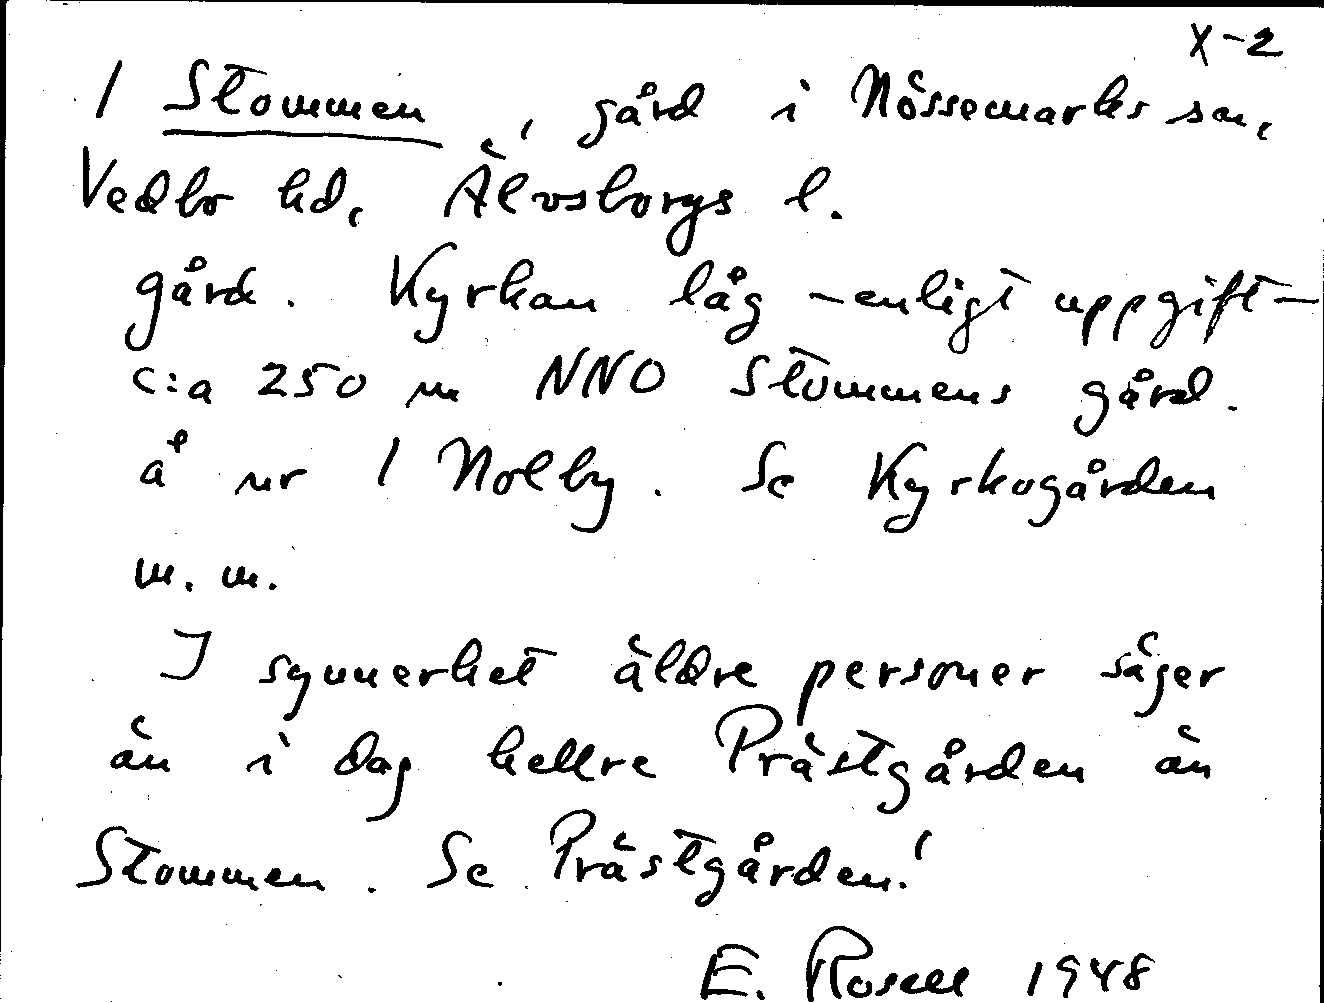 X-2
1 Stommen, gård i Nössemarks sn,
Vedbo hd, Älvsborgs l.
gård. Kyrkan låg - enligt uppgift -
c:a 250 m NNO Stommens gård.
å nr 1 Nolby. Se Kyrkogården
m. m.
I synnerhet äldre personer säger
än i dag hellre Prästgården än
Stommen. Se Prästgården!
E. Rosell 1948